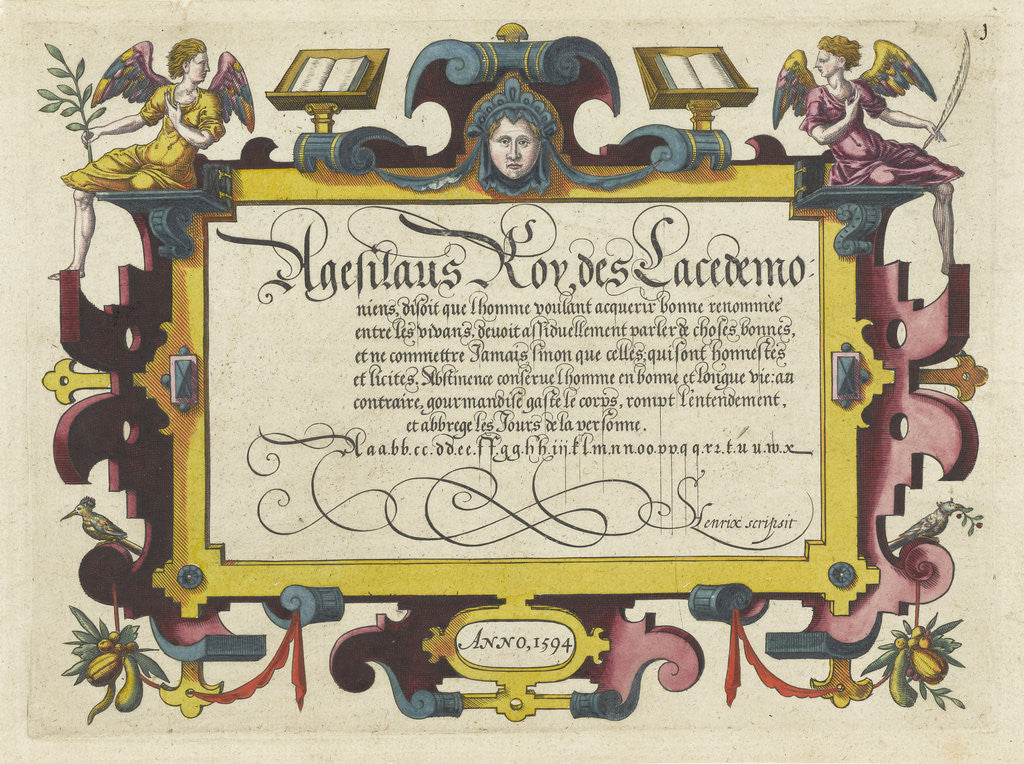 1
Agesilaus Roy, des Lacedemo-
niens, disoit que l'homme voulant acquerir bonne renommée
entre les vivans, devoit assiduellement parler de choses bonnes,
et ne commettre Jamais sinon que celles, qui sont honnestes
et licites. Abstinence conserve l'homme en bonne et longue vie: au
contraire, gourmandise gaste le corps, rompt l'entendement,
et abbrege les Jours de la personne.
A a a. b b. c c. d d. e e. f f. g g. h h. i i j. k l. m. n n. o o. p p. q q. r. r z. t. u u. u. w. x
Henrix scripsit
ANNO, 1594